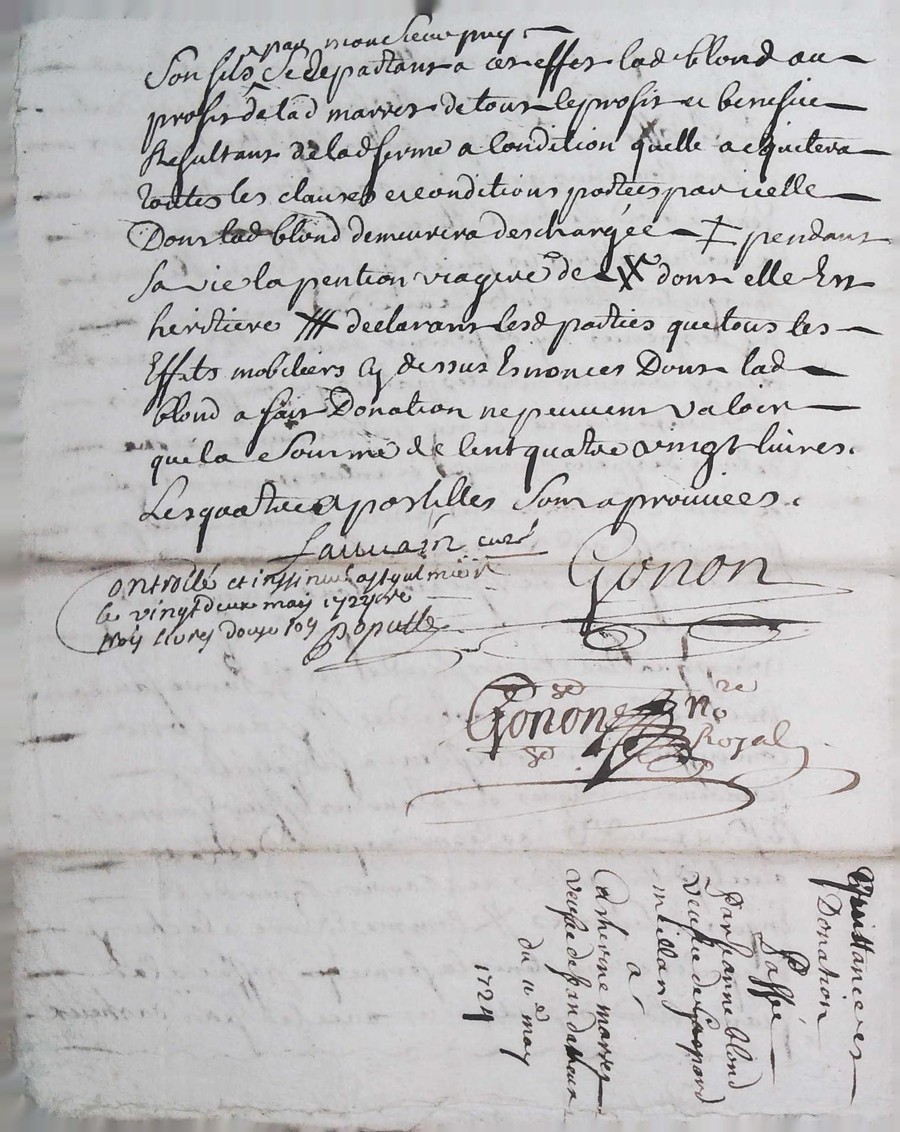 par monsieur puy
Son fils Se departant a cet effet lad blond au
profit de lad marret de tout le profit et benefice
Resultant de lad ferme a Condition quelle acquitera
toutes les clauses et conditions portées par icelle
Dont lad blond demeurera deschargée pendant
sa vie la pention viagere de dont elle Est
heritiere declarant lesd parties que tous les
Effets mobiliers Cy dessus Enoncés Dont lad
blond a fait Donation ne peuvent valoir
que la Somme de Cent quatre vingt livres.
Les quatre apostilles Sont aprouvees.
curé
Gonon
Controllé et insinué a
le vingt deux may 172
trois livres douze sols
Gonon nore
Royal
Quittance et
Donation
Passé
Par Jeanne blond
Veufve de Gaspard
millan
a
Catherine marret
veufve de
du 11e may
1724